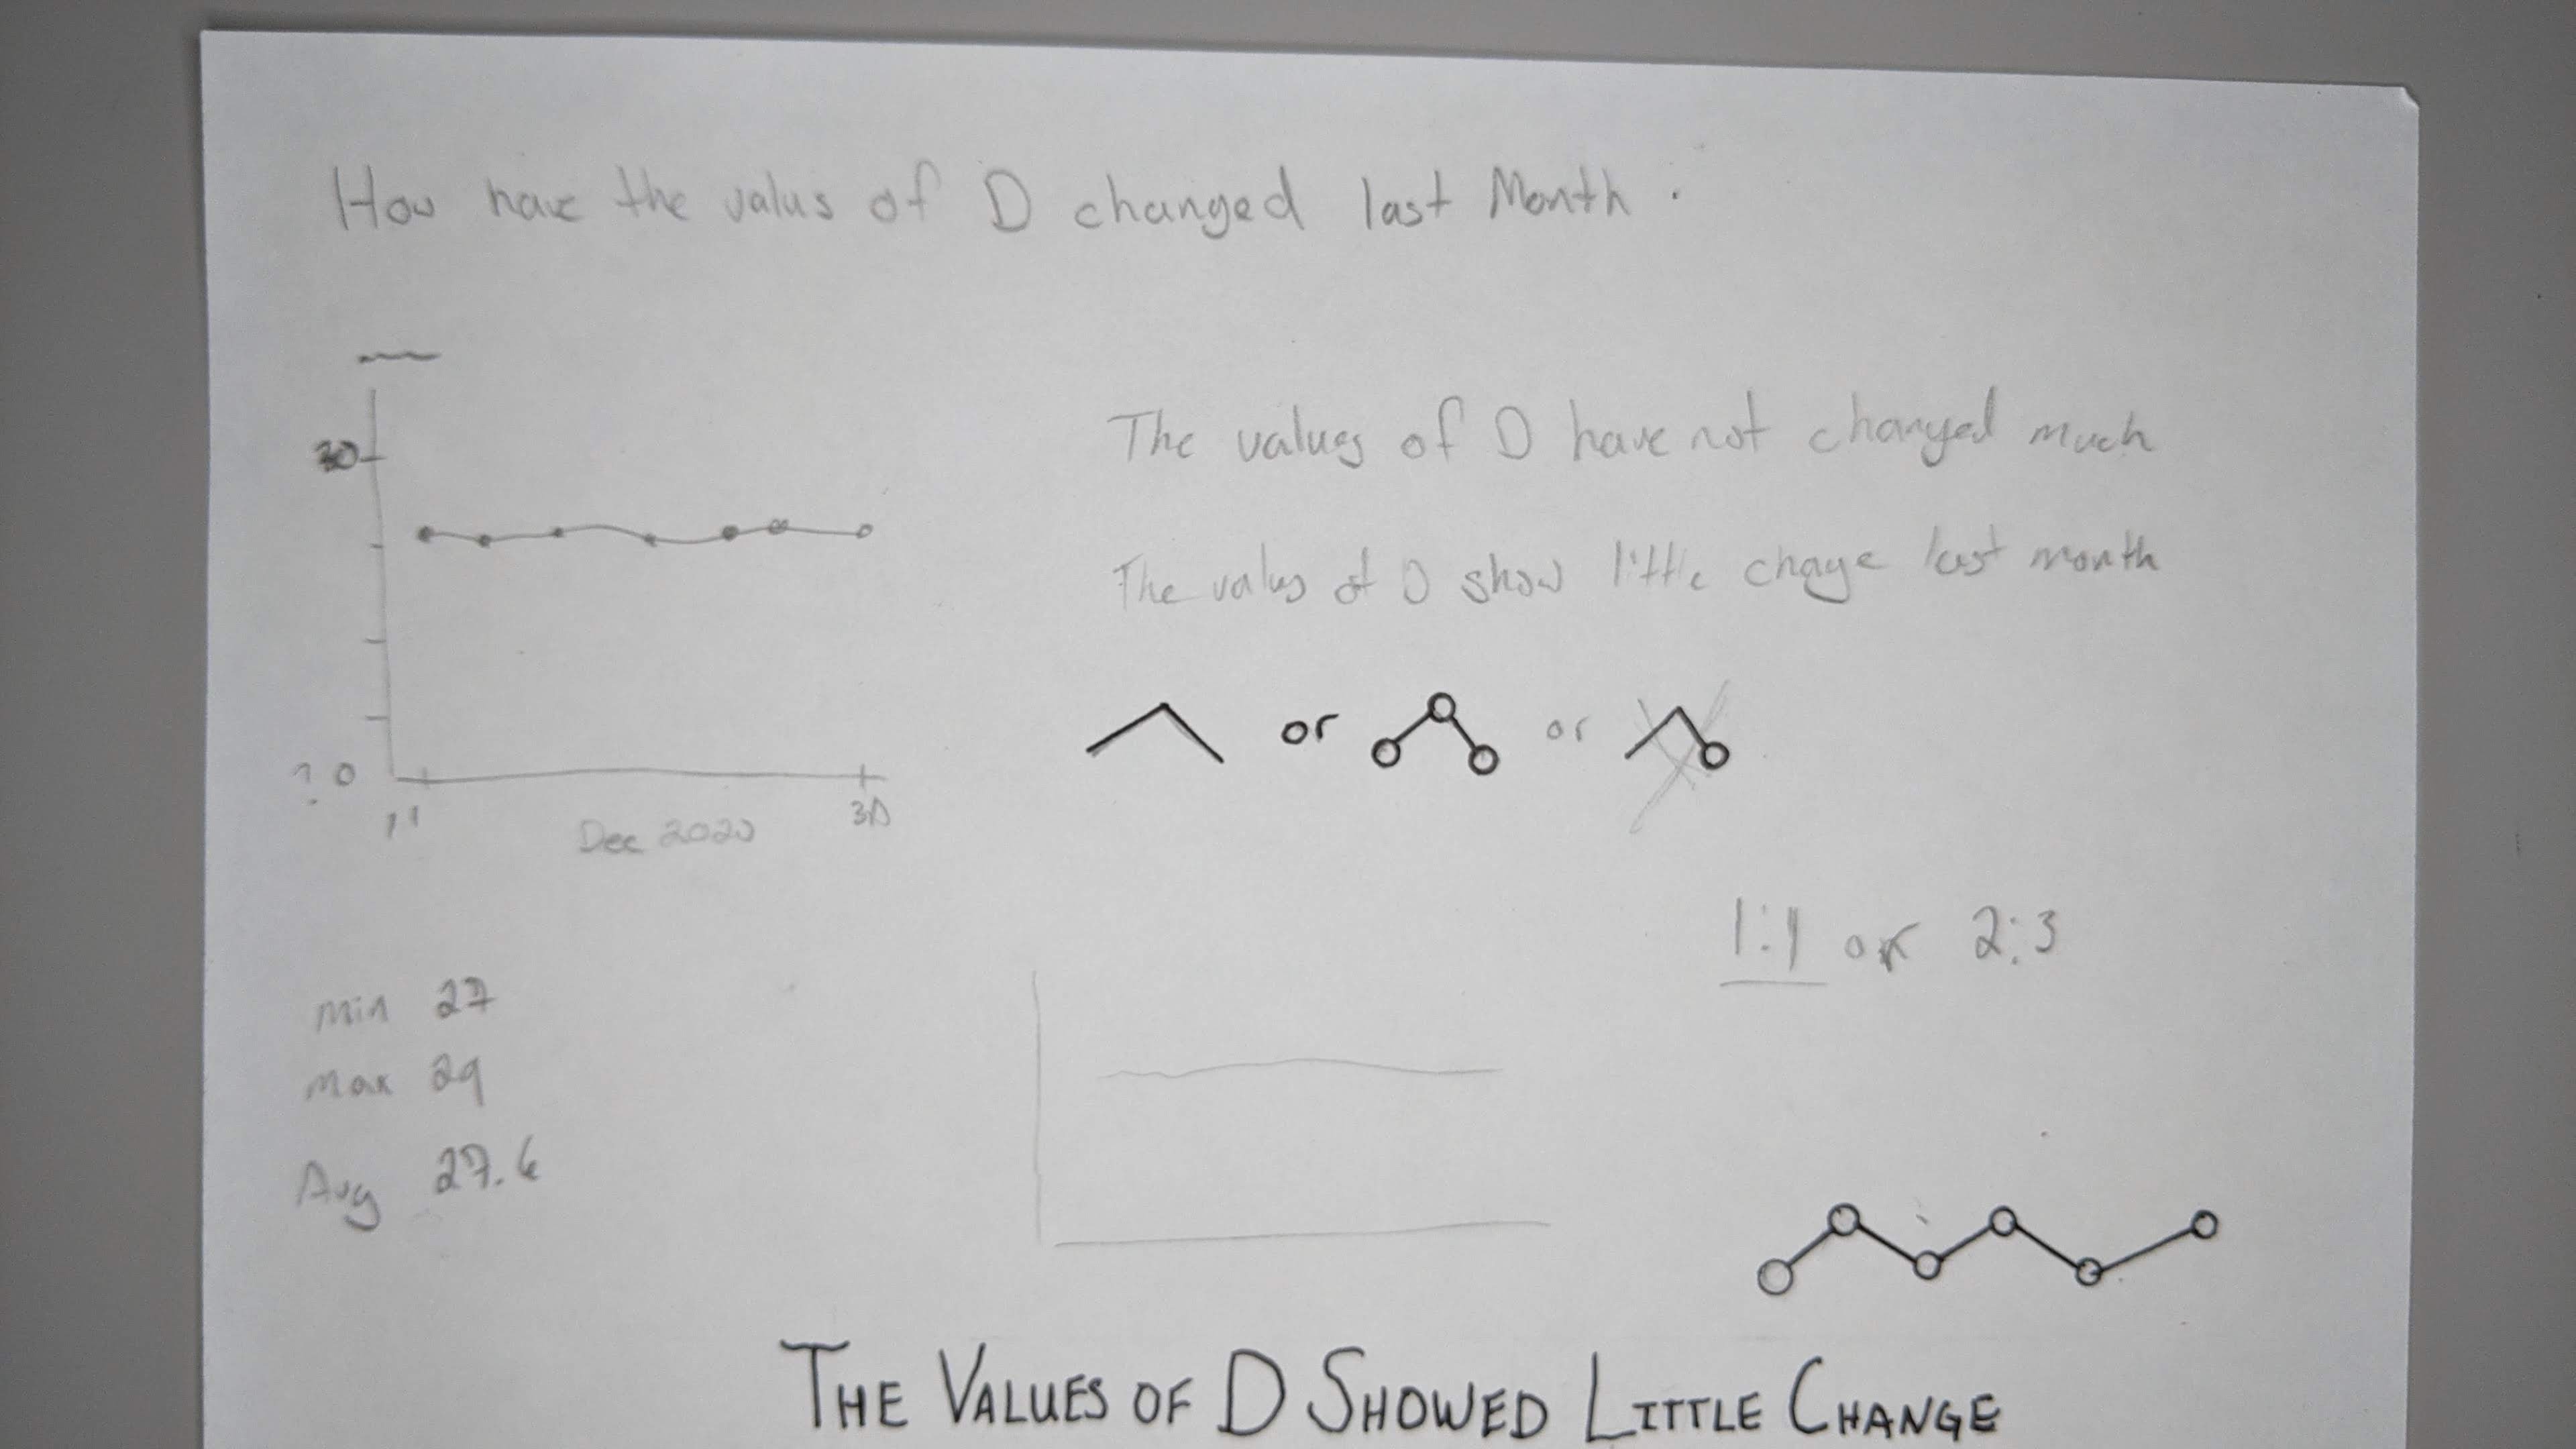 How have the valus of D changed last Month .
30
The values of D have not changed much
The values of D show little change last month
or
or
? 0
1
30
Dec 2020
1:1 or 2:3
min 27
max 29
Avg 27.6
THE VALUES OF D SHOWED LITTLE CHANGE